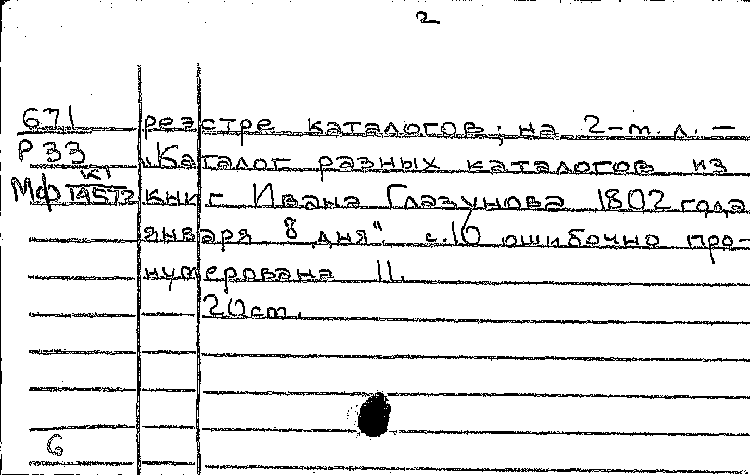 2
671 реэстре каталогов; на 2-т. л. –
Р 33 „Каталог разных каталогов из
Мф К1 14572 книг Ивана Глазунова 1802 года
января 8 дня". с. 10 ошибочно про-
нумерована 11.
20 ст.
6